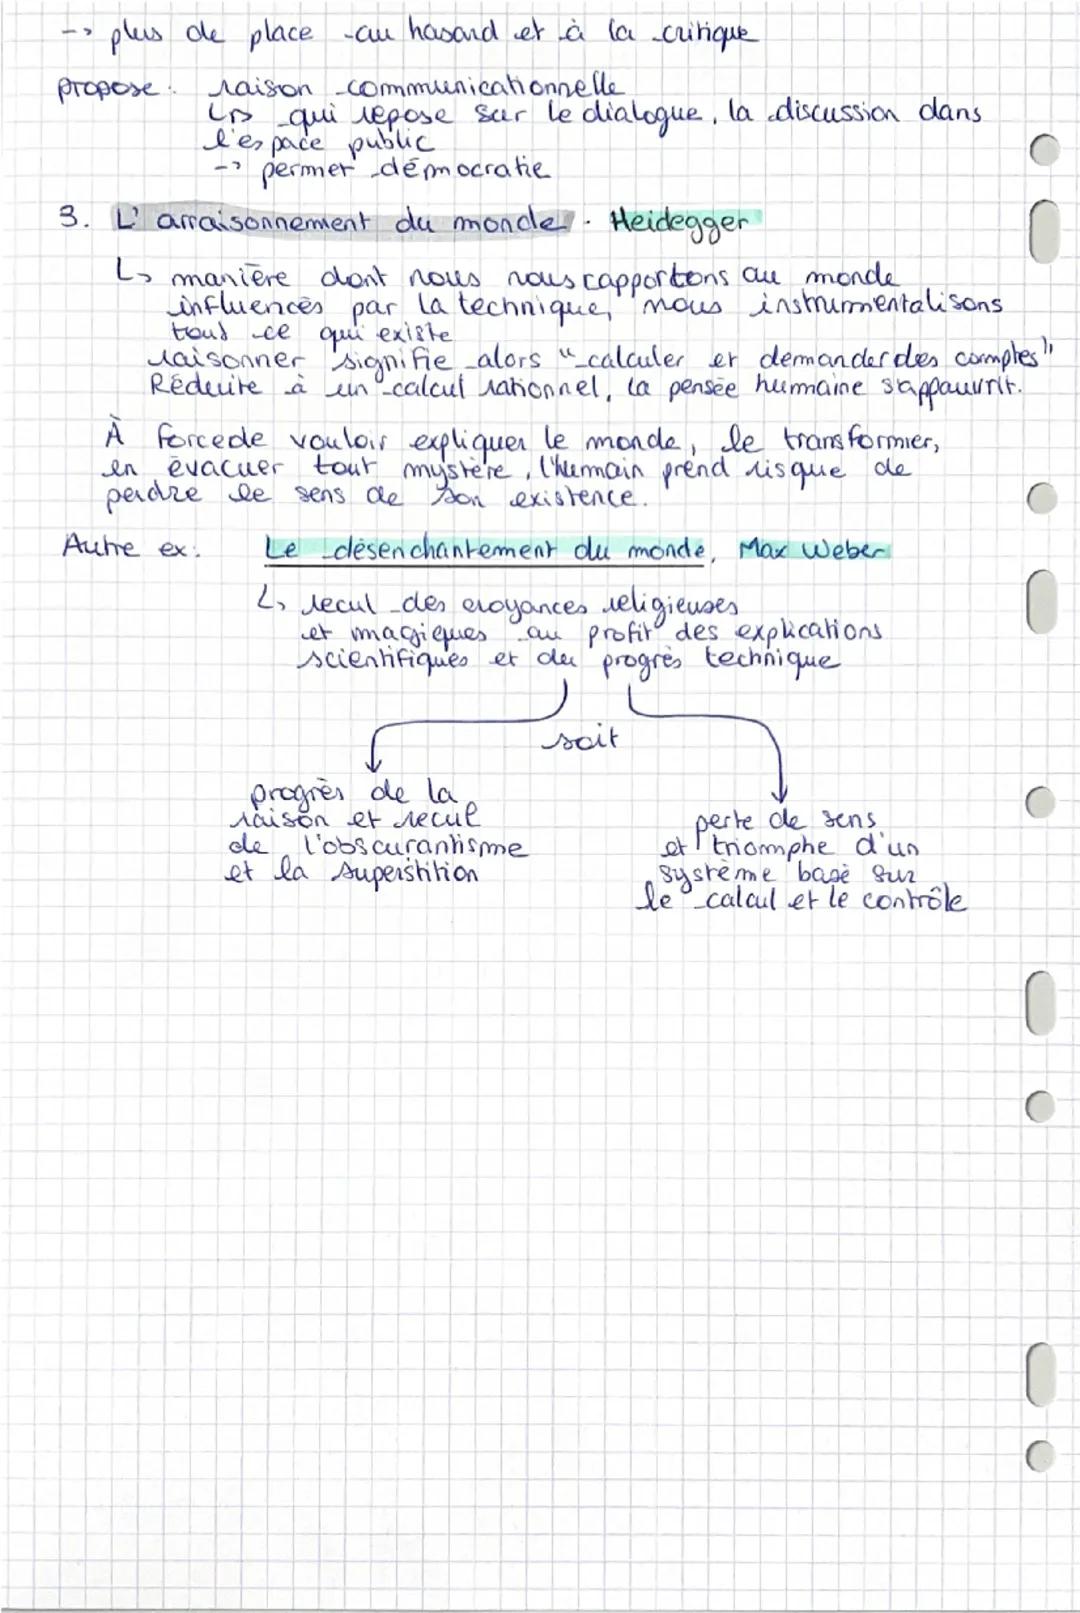 -> plus de place au hasard et à la critique
propose : raison communicationnelle
↳ qui repose sur le dialogue, la discussion dans
l'espace public
-> permet démocratie
3. L'arraisonnement du monde . Heidegger
↳ manière dont nous nous rapportons au monde
influencés par la technique, nous instrumentalisons
tout ce qui existe
raisonner signifie alors "calculer et demander des comptes"
Réduite à un calcul rationnel, la pensée humaine s'appauvrit.
À force de vouloir expliquer le monde, le transformer,
en évacuer tout mystère, l'humain prend risque de
perdre le sens de son existence.
Autre ex: Le désenchantement du monde, Max Weber
↳ recul des croyances religieuses
et magiques au profit des explications
scientifiques et du progrès technique
soit
progrès de la
raison et recul
de l'obscurantisme
et la superstition
perte de sens
et triomphe d'un
système basé sur
le calcul et le contrôle